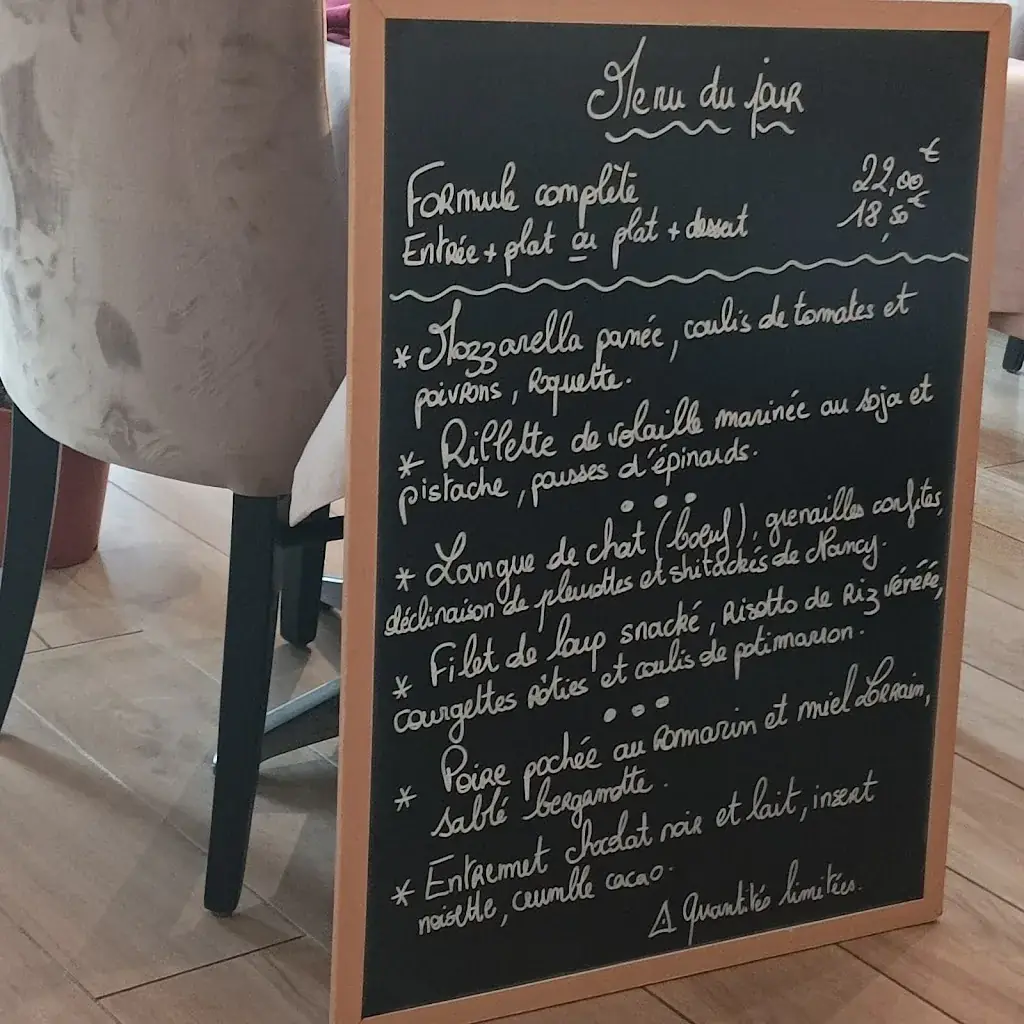 Menu du jour
Formule complète 22,00€
Entrée + plat ou plat + dessert 18,50€
* Mozzarella panée, coulis de tomates et
poivrons, Roquette.
* Rillette de volaille marinée au soja et
pistache, pousses d'épinards.
...
* Langue de chat (bœuf), grenailles confites,
déclinaison de pleurottes et shitackés de Nancy.
* Filet de loup snacké, Risotto de Riz vénéré,
courgettes rôties et coulis de potimarron.
...
* Poire pochée au Romarin et miel Lorrain,
sablé bergamotte.
* Entremet chocolat noir et lait, insert
noisette, crumble cacao.
Δ Quantités limitées.